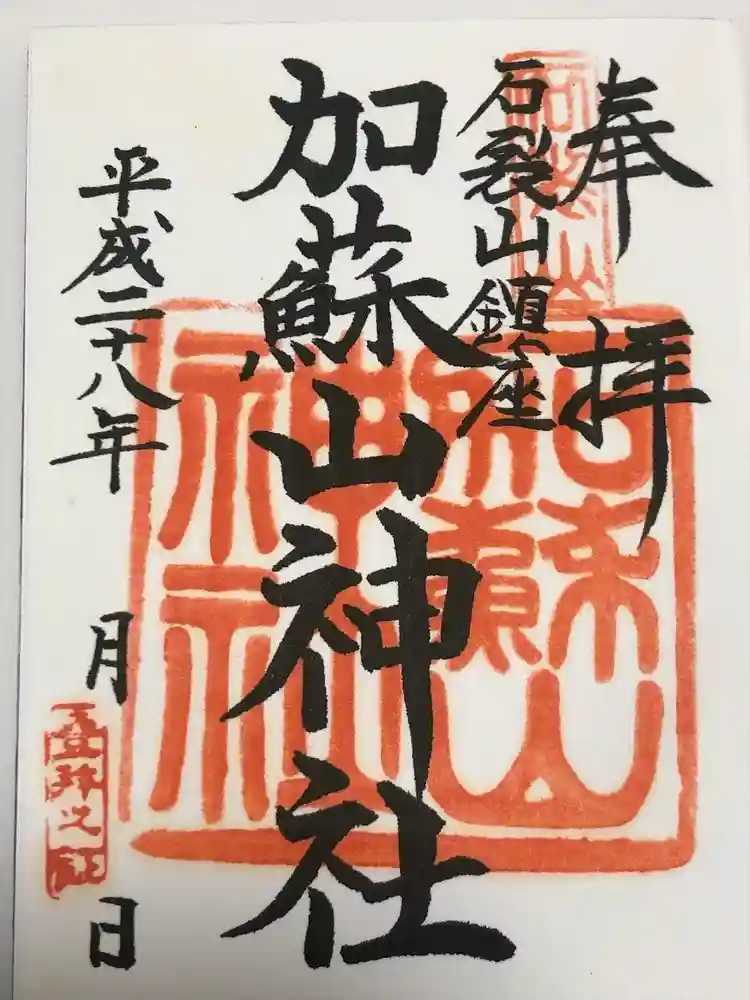 奉拝
石裂山鎮座
加蘇山神社
平成二十八年 月 日
石裂山
加蘇山神社
登拝之証